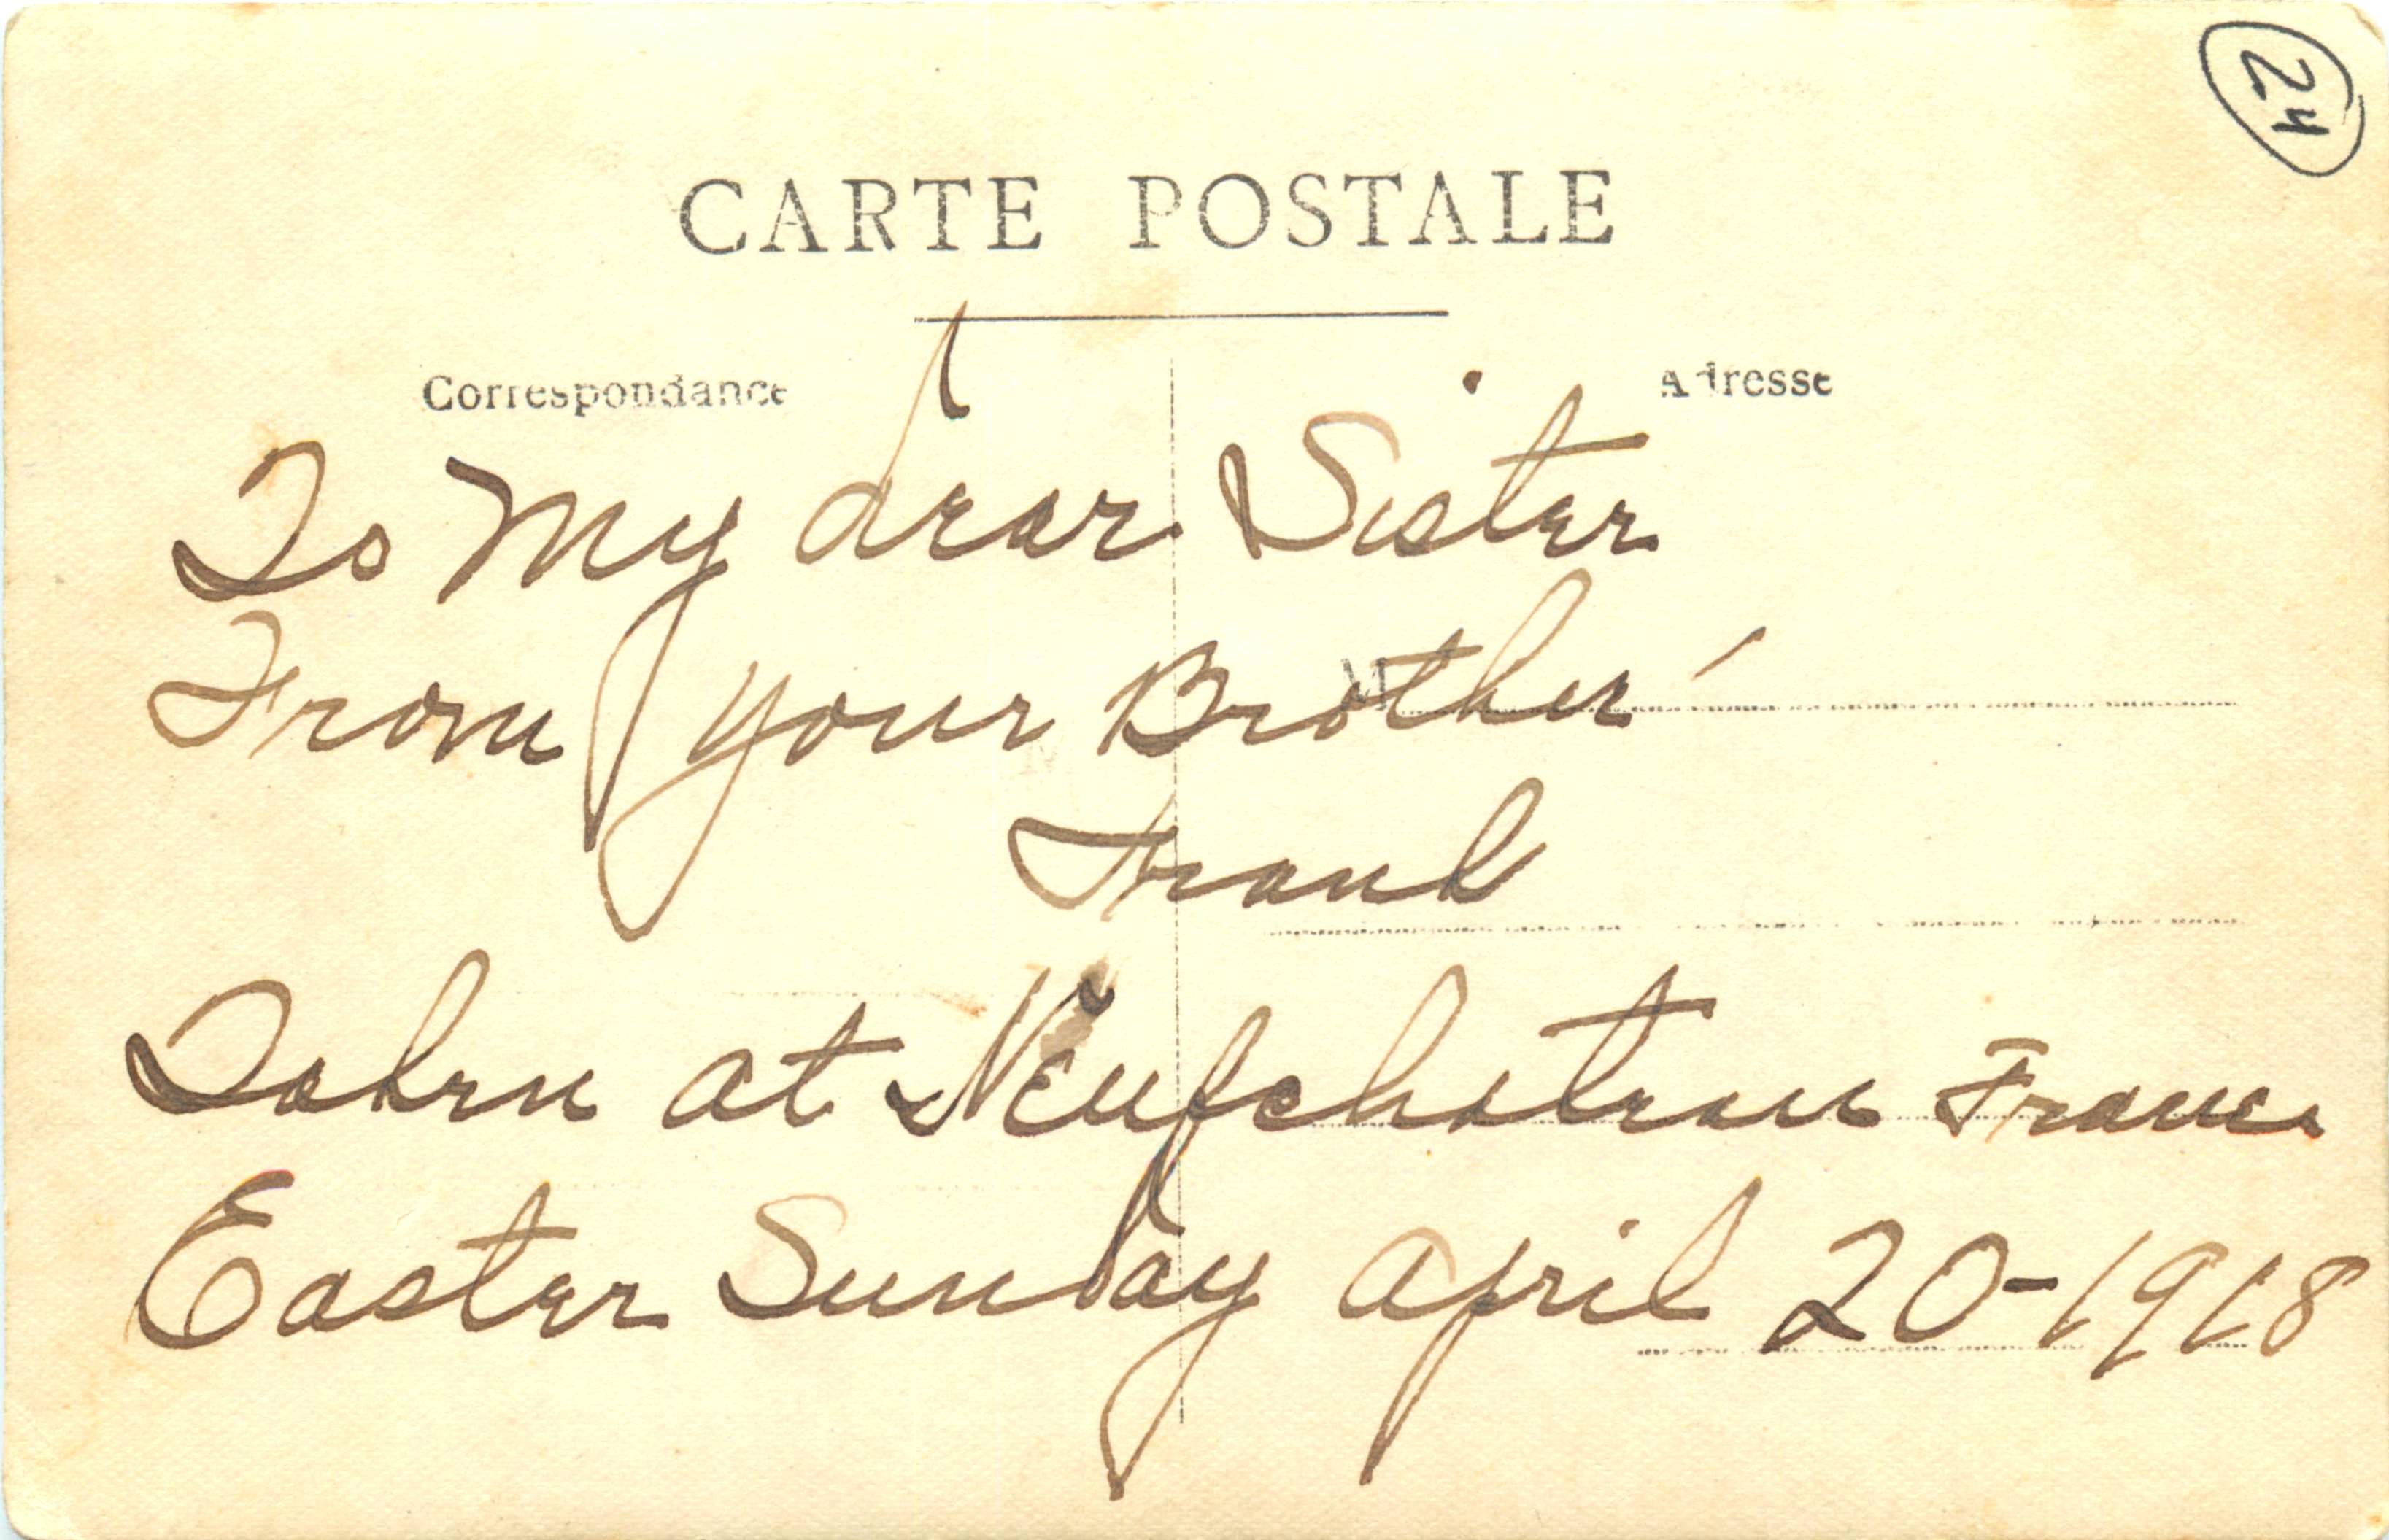 24
CARTE POSTALE
Correspondance Adresse
To My dear Sister
From your Brother
M
Frank
Taken at Neufchateau France
Easter Sunday April 20-1918